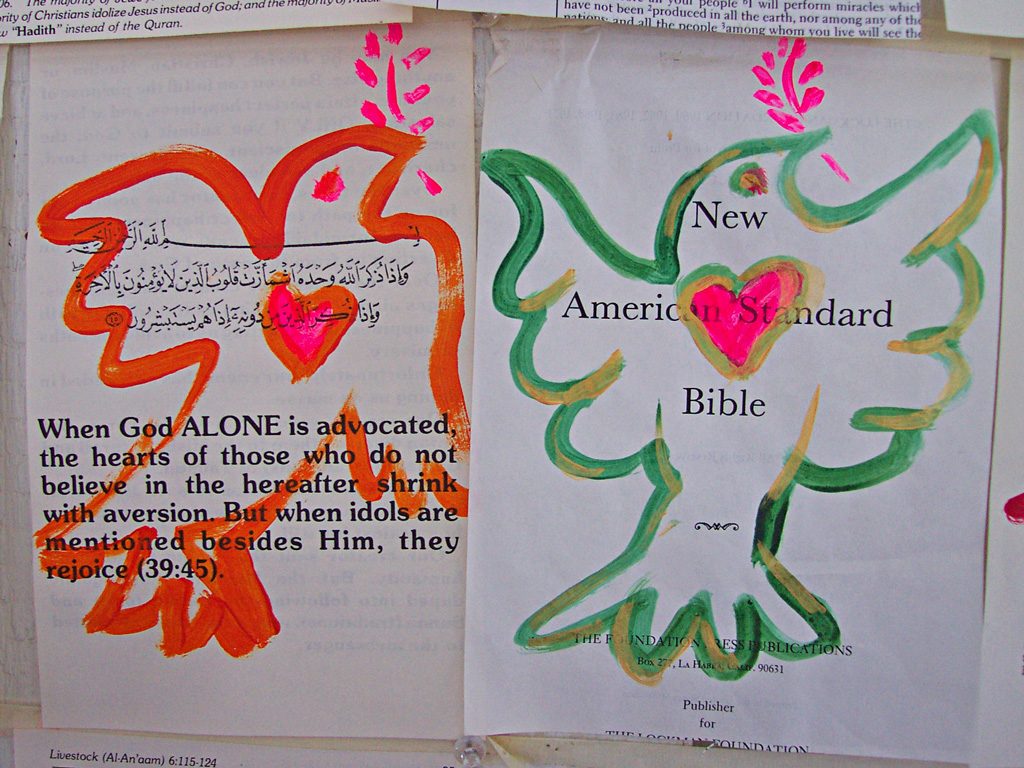 06. The majority of
ority of Christians idolize Jesus instead of God; and the majority of
w "Hadith" instead of the Quran.
your people I will perform miracles which
have not been ²produced in all the earth, nor among any of the
and all the people ³among whom you live will see the
بِسْمِ ٱللَّهِ ٱلرَّحْمَٰنِ ٱلرَّحِيمِ
وَإِذَا ذُكِرَ ٱللَّهُ وَحْدَهُ ٱشْمَأَزَّتْ قُلُوبُ ٱلَّذِينَ لَا يُؤْمِنُونَ بِٱلْآخِرَةِ
وَإِذَا ذُكِرَ ٱلَّذِينَ مِن دُونِهِۦٓ إِذَا هُمْ يَسْتَبْشِرُونَ ٤٥
When God ALONE is advocated,
the hearts of those who do not
believe in the hereafter shrink
with aversion. But when idols are
mentioned besides Him, they
rejoice (39:45).
New
American Standard
Bible
THE FOUNDATION PRESS PUBLICATIONS
Box 277, LA HABRA, CALIF. 90631
Publisher
for
THE LOCKMAN FOUNDATION
Livestock (Al-An'aam) 6:115-124